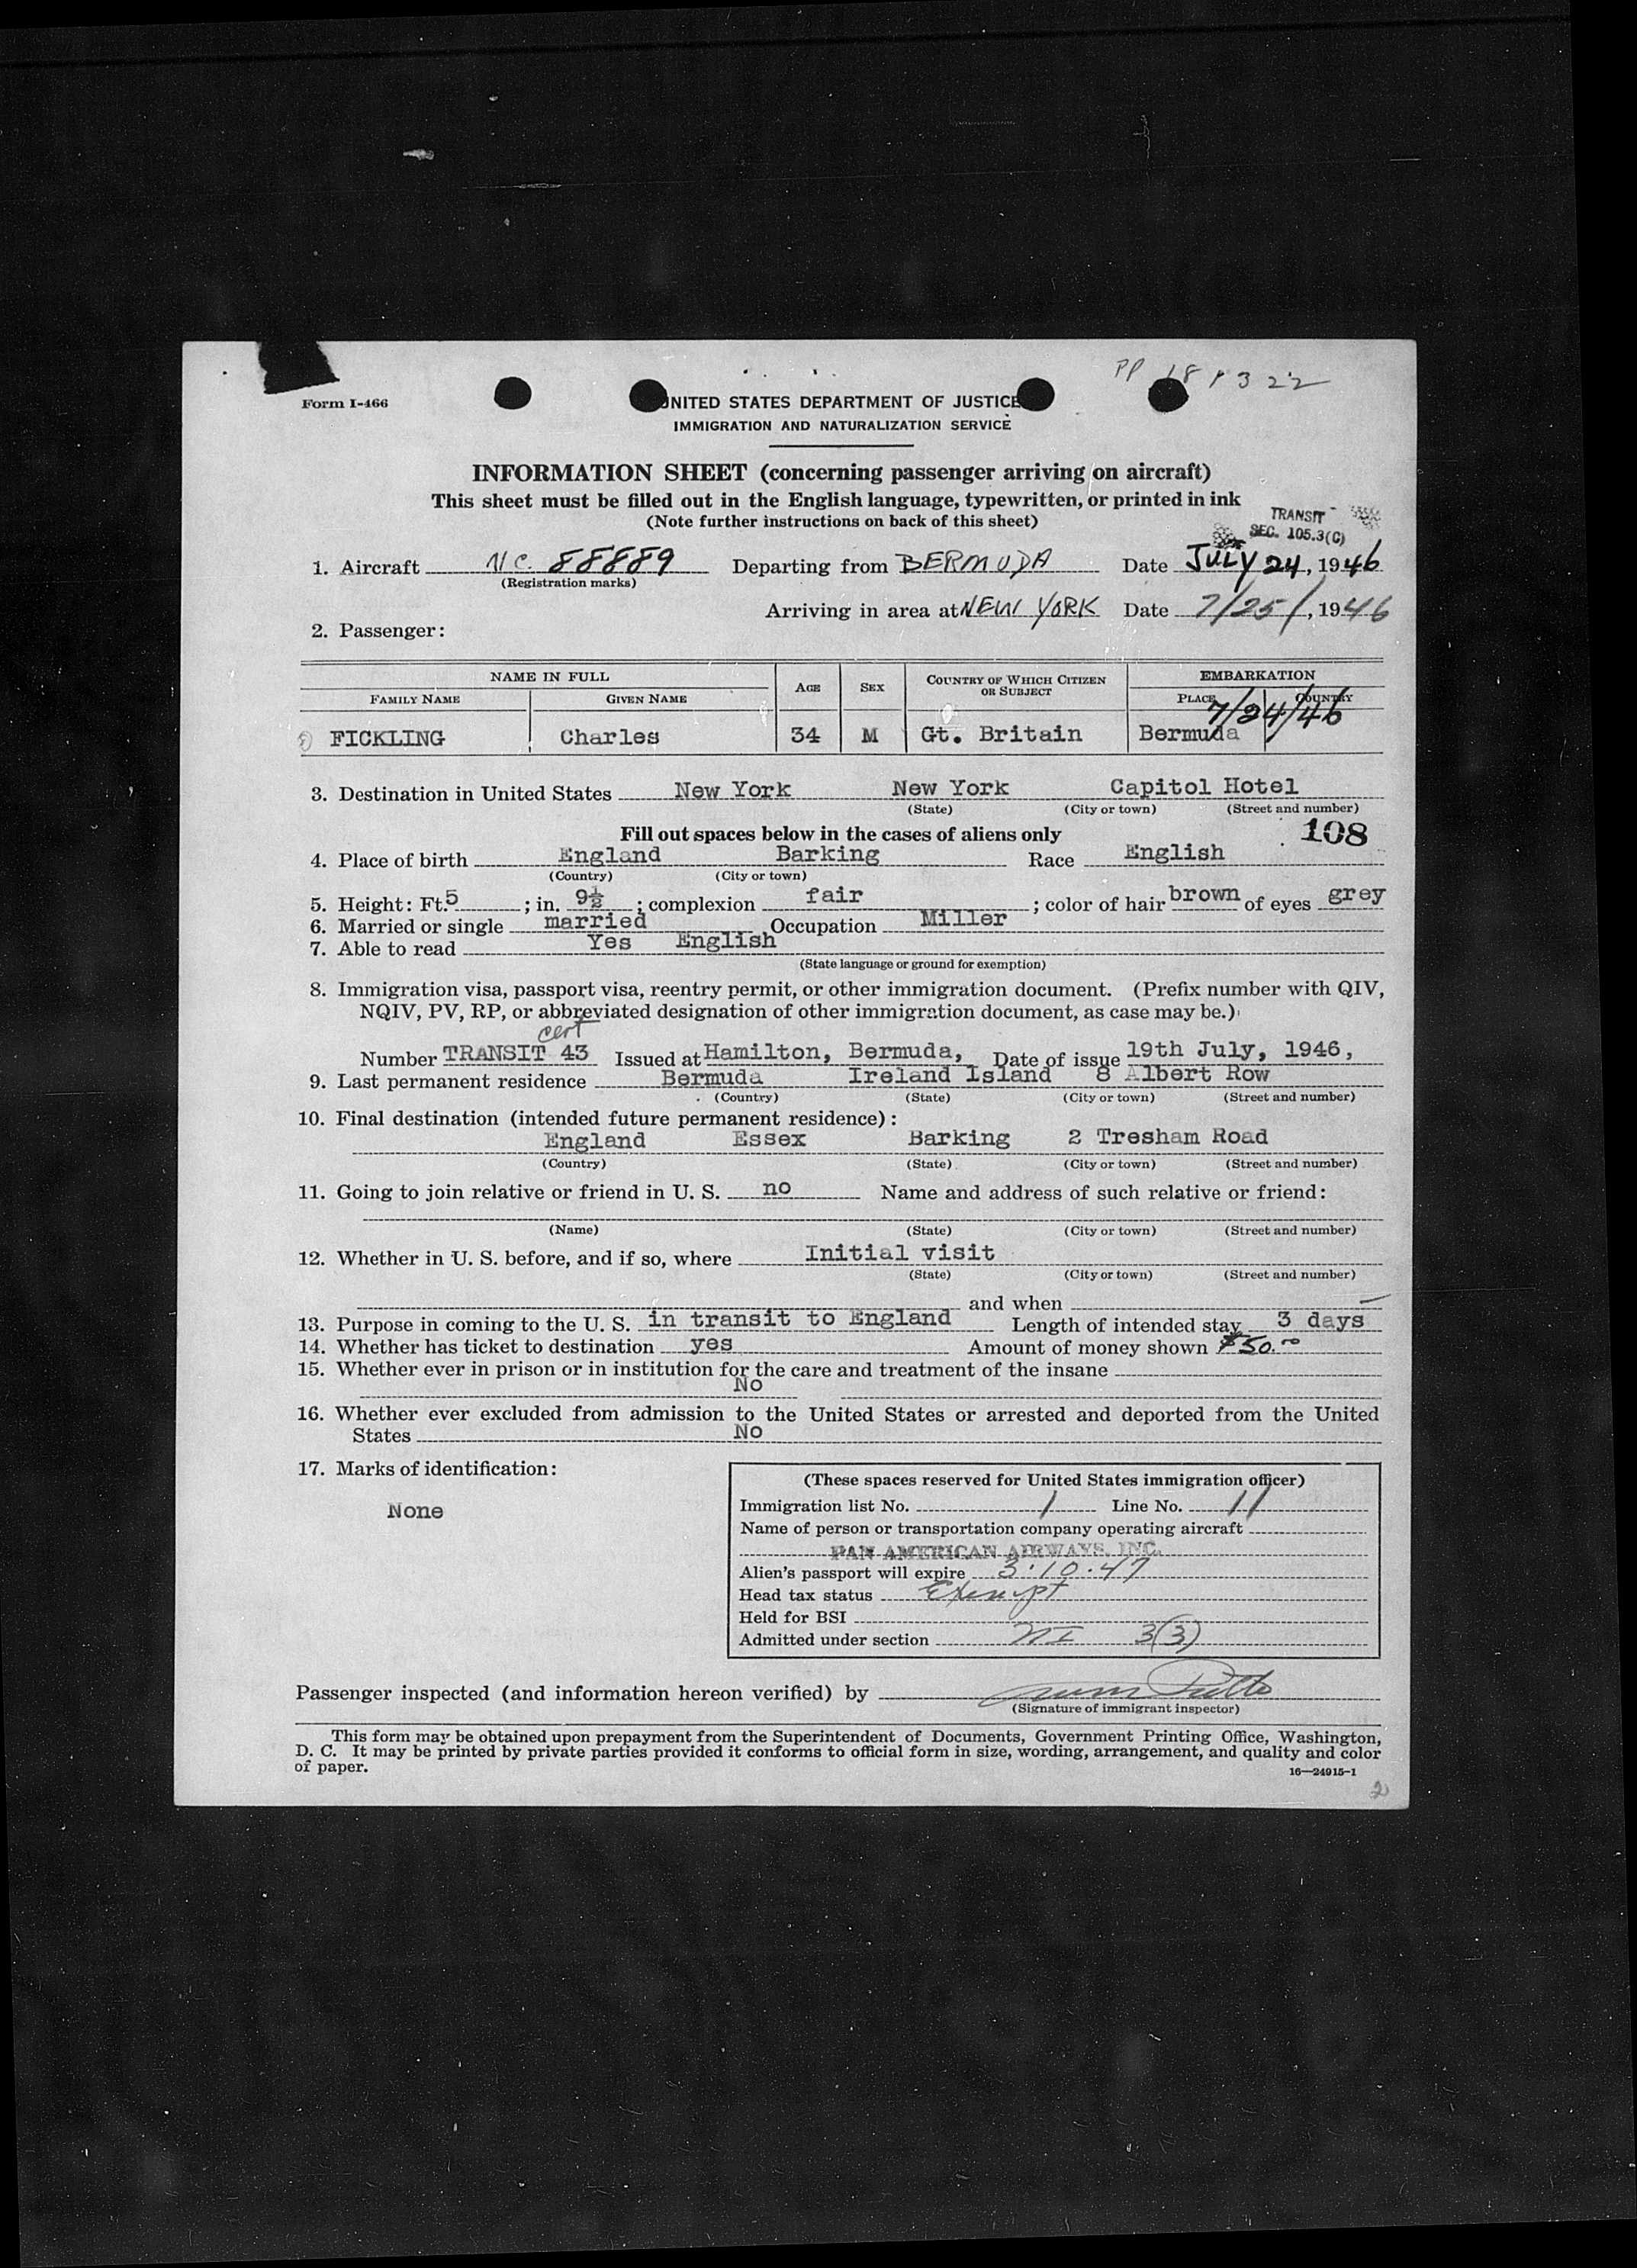 PP 181322
Form I-466
UNITED STATES DEPARTMENT OF JUSTICE
IMMIGRATION AND NATURALIZATION SERVICE
INFORMATION SHEET (concerning passenger arriving on aircraft)
This sheet must be filled out in the English language, typewritten, or printed in ink
(Note further instructions on back of this sheet)
TRANSIT
SEC. 105.3(C)
1. Aircraft N.C. 88889 Departing from BERMUDA Date JULY 24, 1946
(Registration marks)
Arriving in area at NEW YORK Date 7/25/, 1946
2. Passenger:
NAME IN FULL AGE SEX COUNTRY OF WHICH CITIZEN OR SUBJECT EMBARKATION
FAMILY NAME GIVEN NAME PLACE COUNTRY
7/24/46
FICKLING Charles 34 M Gt. Britain Bermuda
3. Destination in United States New York New York Capitol Hotel
(State) (City or town) (Street and number)
Fill out spaces below in the cases of aliens only 108
4. Place of birth England Barking Race English
(Country) (City or town)
5. Height: Ft. 5 ; in. 9½ ; complexion fair ; color of hair brown of eyes grey
6. Married or single married Occupation Miller
7. Able to read Yes English
(State language or ground for exemption)
8. Immigration visa, passport visa, reentry permit, or other immigration document. (Prefix number with QIV,
NQIV, PV, RP, or abbreviated designation of other immigration document, as case may be.)
cert
Number TRANSIT 43 Issued at Hamilton, Bermuda, Date of issue 19th July, 1946,
9. Last permanent residence Bermuda Ireland Island 8 Albert Row
(Country) (State) (City or town) (Street and number)
10. Final destination (intended future permanent residence):
England Essex Barking 2 Tresham Road
(Country) (State) (City or town) (Street and number)
11. Going to join relative or friend in U. S. no Name and address of such relative or friend:
(Name) (State) (City or town) (Street and number)
12. Whether in U. S. before, and if so, where Initial visit
(State) (City or town) (Street and number)
and when
13. Purpose in coming to the U. S. in transit to England Length of intended stay 3 days
14. Whether has ticket to destination yes Amount of money shown $50.00
15. Whether ever in prison or in institution for the care and treatment of the insane
No
16. Whether ever excluded from admission to the United States or arrested and deported from the United
States No
17. Marks of identification:
None
(These spaces reserved for United States immigration officer)
Immigration list No. 1 Line No. 11
Name of person or transportation company operating aircraft
PAN AMERICAN AIRWAYS, INC.
Alien's passport will expire 3.10.47
Head tax status Exempt
Held for BSI
Admitted under section NI 3(3)
Passenger inspected (and information hereon verified) by
(Signature of immigrant inspector)
This form may be obtained upon prepayment from the Superintendent of Documents, Government Printing Office, Washington,
D. C. It may be printed by private parties provided it conforms to official form in size, wording, arrangement, and quality and color
of paper.
16—24915-1
2